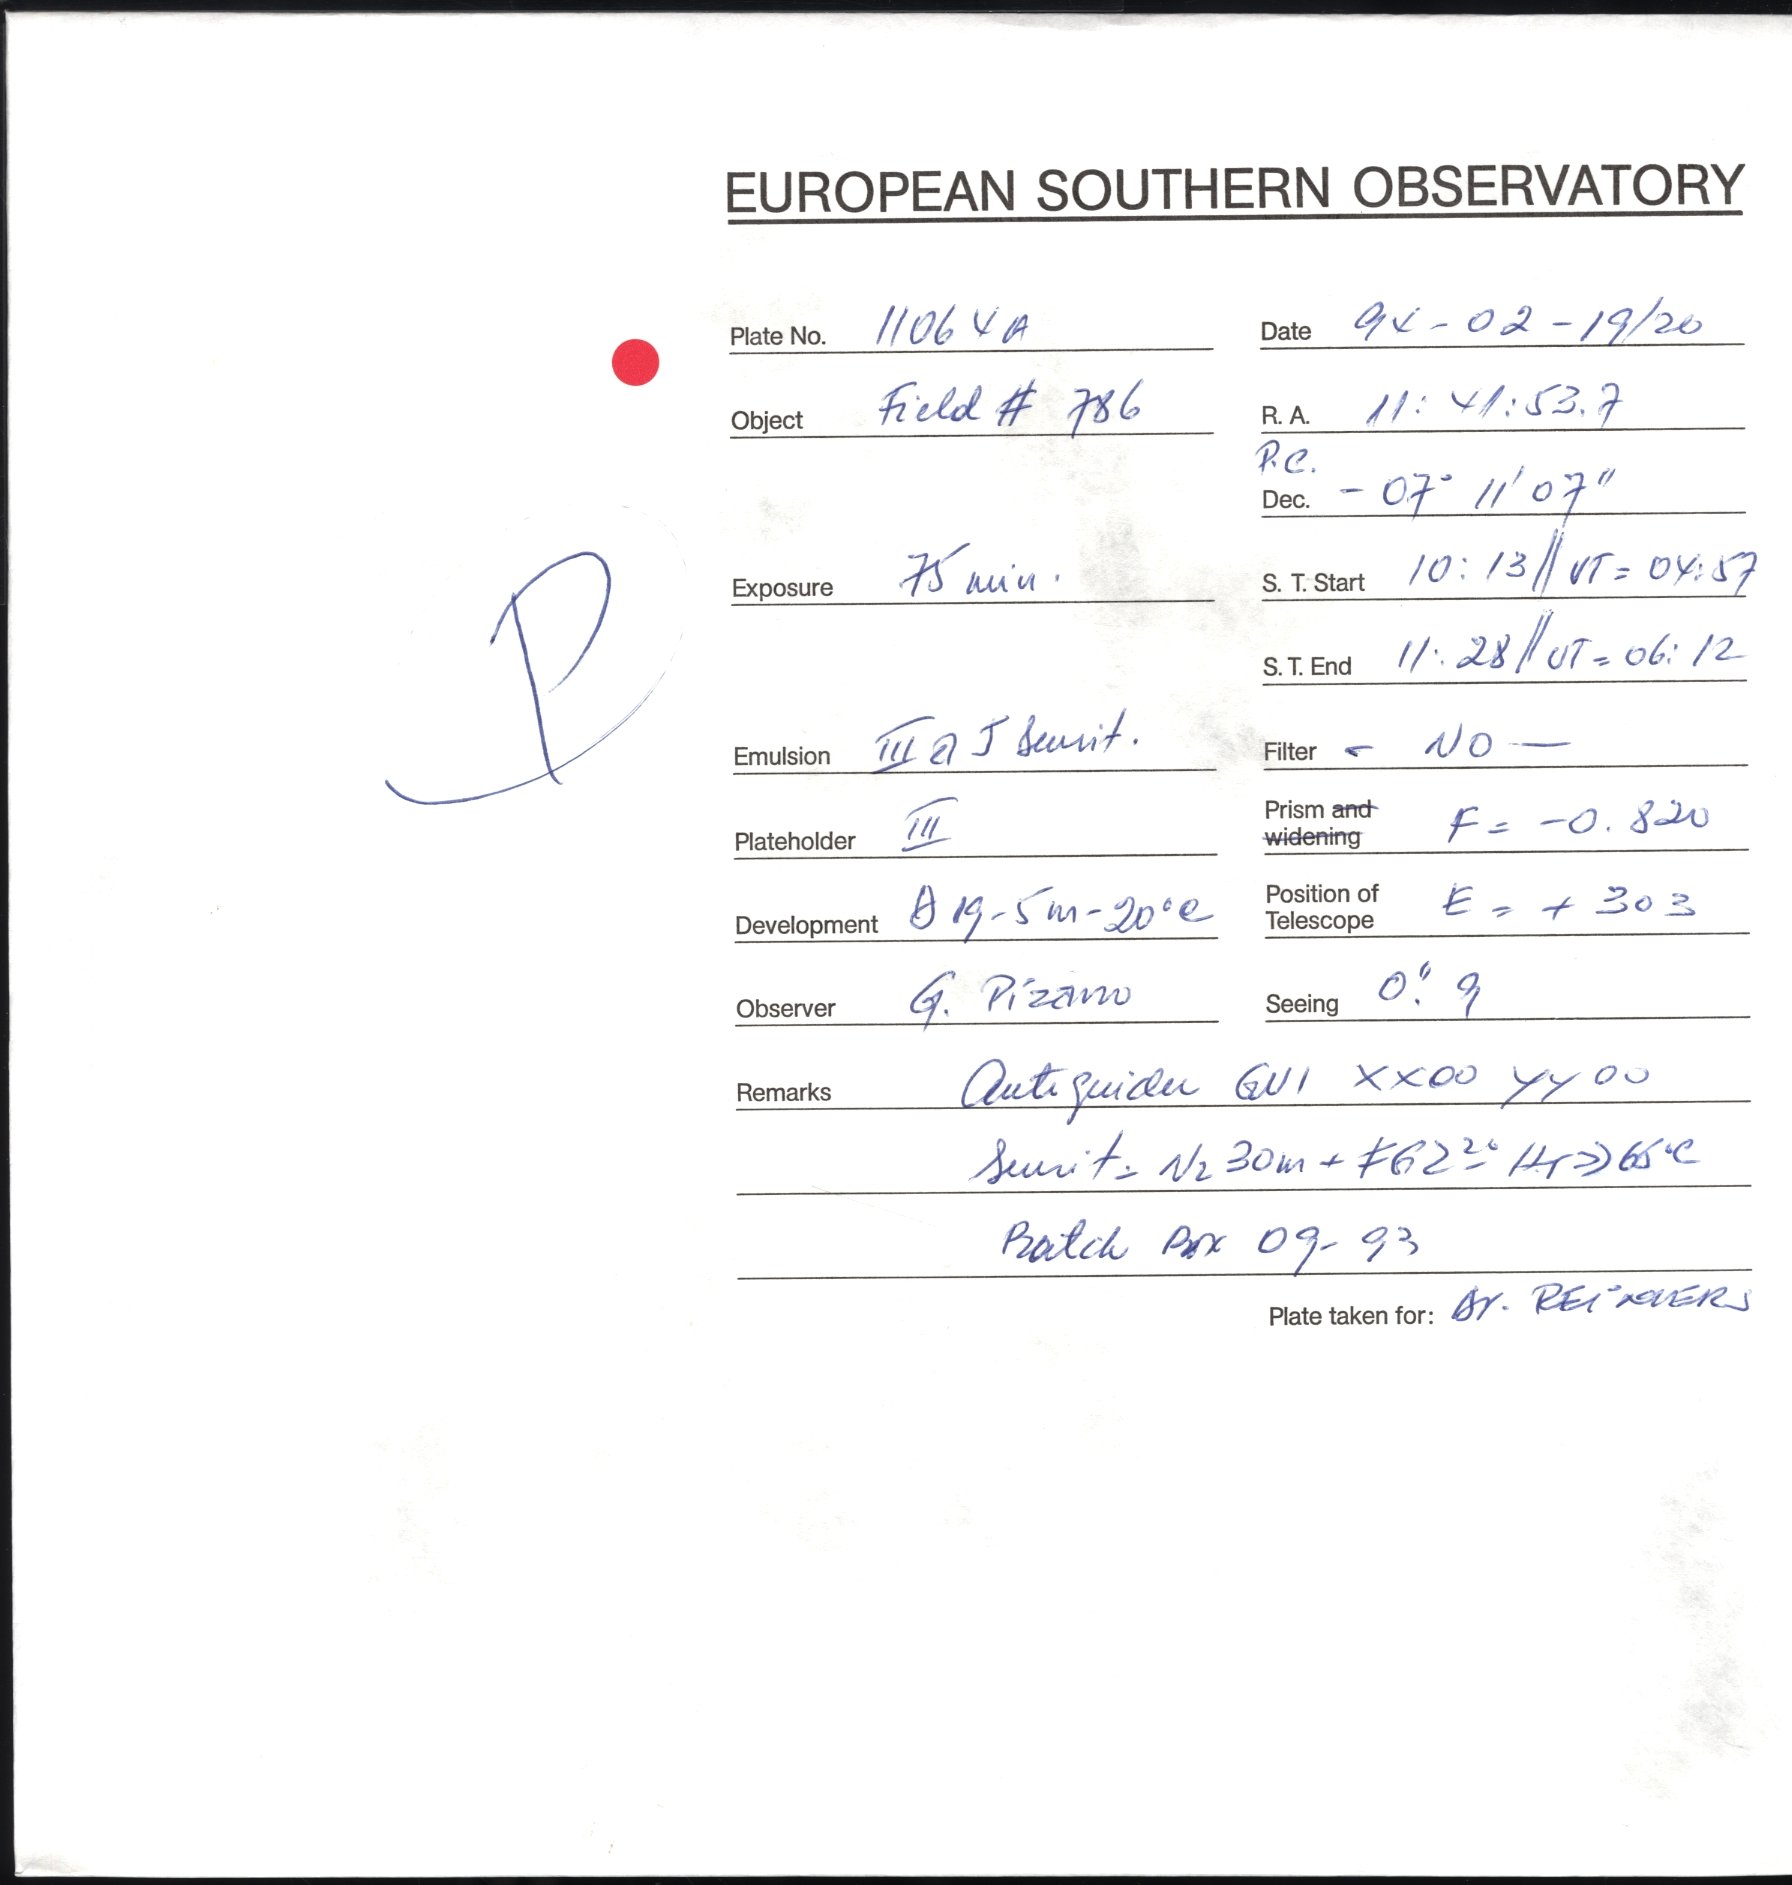 EUROPEAN SOUTHERN OBSERVATORY
Plate No. 11064A
Date 94-02-19/20
Object Field # 786
R. A. 11:41:53.7
P.C.
Dec. -07° 11' 07"
Exposure 75 min.
S. T. Start 10:13 // UT = 04:57
S. T. End 11:28 // UT = 06:12
P
Emulsion III a J Sensit.
Filter - NO —
Plateholder III
Prism and widening F = -0.820
Development D 19-5m-20°C
Position of Telescope E = + 303
Observer G. Pizarro
Seeing 0".9
Remarks Autoguider GV1 XX00 YY00
Sensit = N2 30m +
65°C
Batch Box 09-93
Plate taken for: Dr. REIMERS